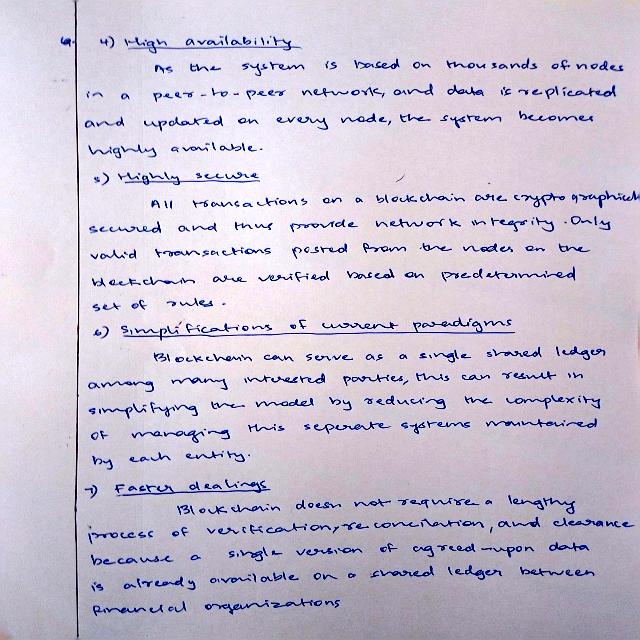 4) High availability
As the system is based on thousands of nodes
in a peer-to-peer network, and data is replicated
and updated on every node, the system becomes
highly available.
5) Highly secure
All transactions on a blockchain are cryptographical
secured and thus provide network integrity. Only
valid transactions posted from the nodes on the
blockchain are verified based on predetermined
set of rules.
6) Simplifications of current paradigms
Blockchain can serve as a single shared ledger
among many interested parties, this can result in
simplifying the model by reducing the complexity
of managing this seperate systems maintained
by each entity.
7) Faster dealings
Blockchain doesn not require a lengthy
process of verification, reconcilation, and clearance
because a single version of agreed-upon data
is already available on a shared ledger between
financial organizations